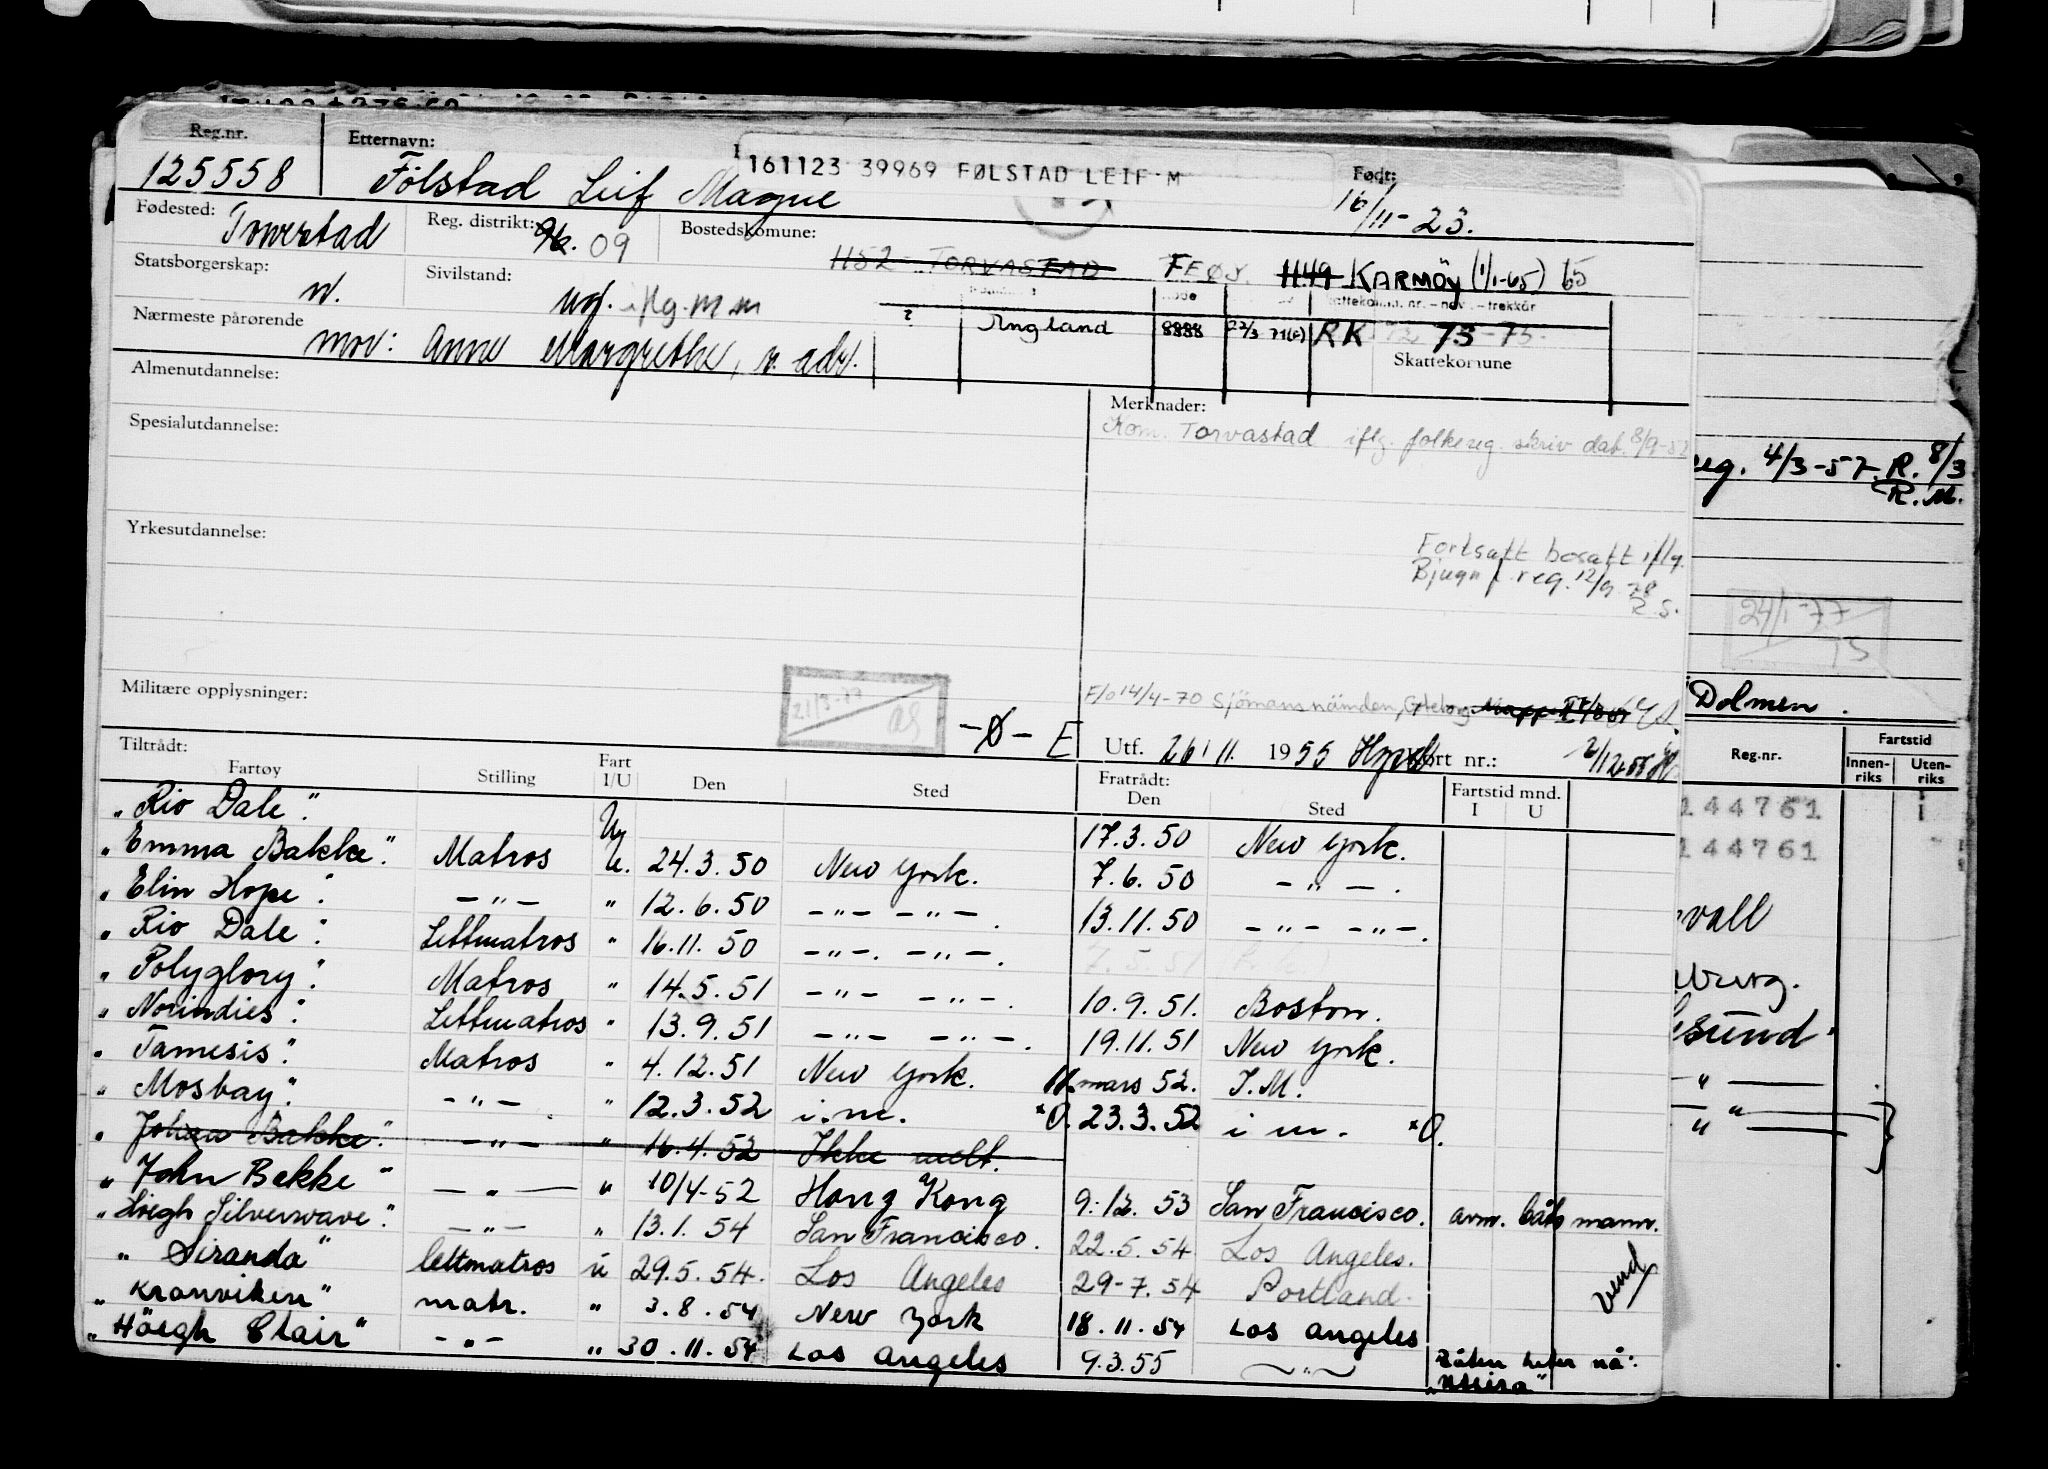 Reg.nr. Etternavn: 161123 39969 FØLSTAD LEIF M Født:
125558 Fölstad Leif Magne 16/11-23.
Fødested: Reg. distrikt: 09 Bostedskomune:
1152 TORVASTAD FEØY. 1149 KARMØY (1/1-65) 65
Statsborgerskap: n. Sivilstand: ug. iflg. m m
? England 8888 RK 73-75
Skattekomune
Nærmeste pårørende mor: Anne Margrethe, s. adr.
Almenutdannelse: Merknader:
Kom. Torvastad iflg. folkereg. skriv dat. 8/9-52
Spesialutdannelse:
reg. 4/3-57 R. 8/3
R. M.
Yrkesutdannelse:
Fortsatt bosatt iflg.
Bjugn f. reg. 12/9 78
R. S.
24/1-77
Militære opplysninger: 21/3-77
F/o 14/4-70 Sjömansnämden, Göteborg
Dolmen.
-Ø- E Utf. 26/11. 1955 nr.:
Tiltrådt: Fratrådt: Reg.nr. Fartstid
Fartøy Stilling Fart I/U Den Sted Den Sted Fartstid mnd. I U Innen-riks Uten-riks
„Rio Dale" 17.3.50 New York. 144761
„Emma Bakke". Matros U. 24.3.50 New York. 7.6.50 – " –. 144761
„Elin Hope". – " – " 12.6.50 – " – – " –. 13.11.50 – " – – " –.
„Rio Dale". Lettmatros " 16.11.50 – " –. – " –. 7.5.51
„Polyglory". Matros " 14.5.51 – " – – " –. 10.9.51. Boston.
„Norindies". Lettmatros " 13.9.51 – " – – " –. 19.11.51 New York.
„Tamesis". Matros " 4.12.51 New York. 11. mars 52. I.M.
„Mosbay". – " –. " 12.3.52 i.m. *O. 23.3.52 i m. *O.
„Johan Bakke". – " – " 16.4.52 Ikke melt.
„John Bakke" – " – " 10/4-52 Hong Kong 9.12.53 San Francisco. avm. båtsmann.
„Höegh Silverwave". – " – " 13.1.54 San Francisco. 22.5.54 Los Angeles.
„Siranda" lettmatros u 29.5.54. Los Angeles 29-7.54 Portland.
vend
„Kronviken" matr. " 3.8.54 New York 18.11.54 Los Angeles
„Höegh Clair" – " – " 30.11.54 Los Angeles 9.3.55 – " –
Båten heter nå: